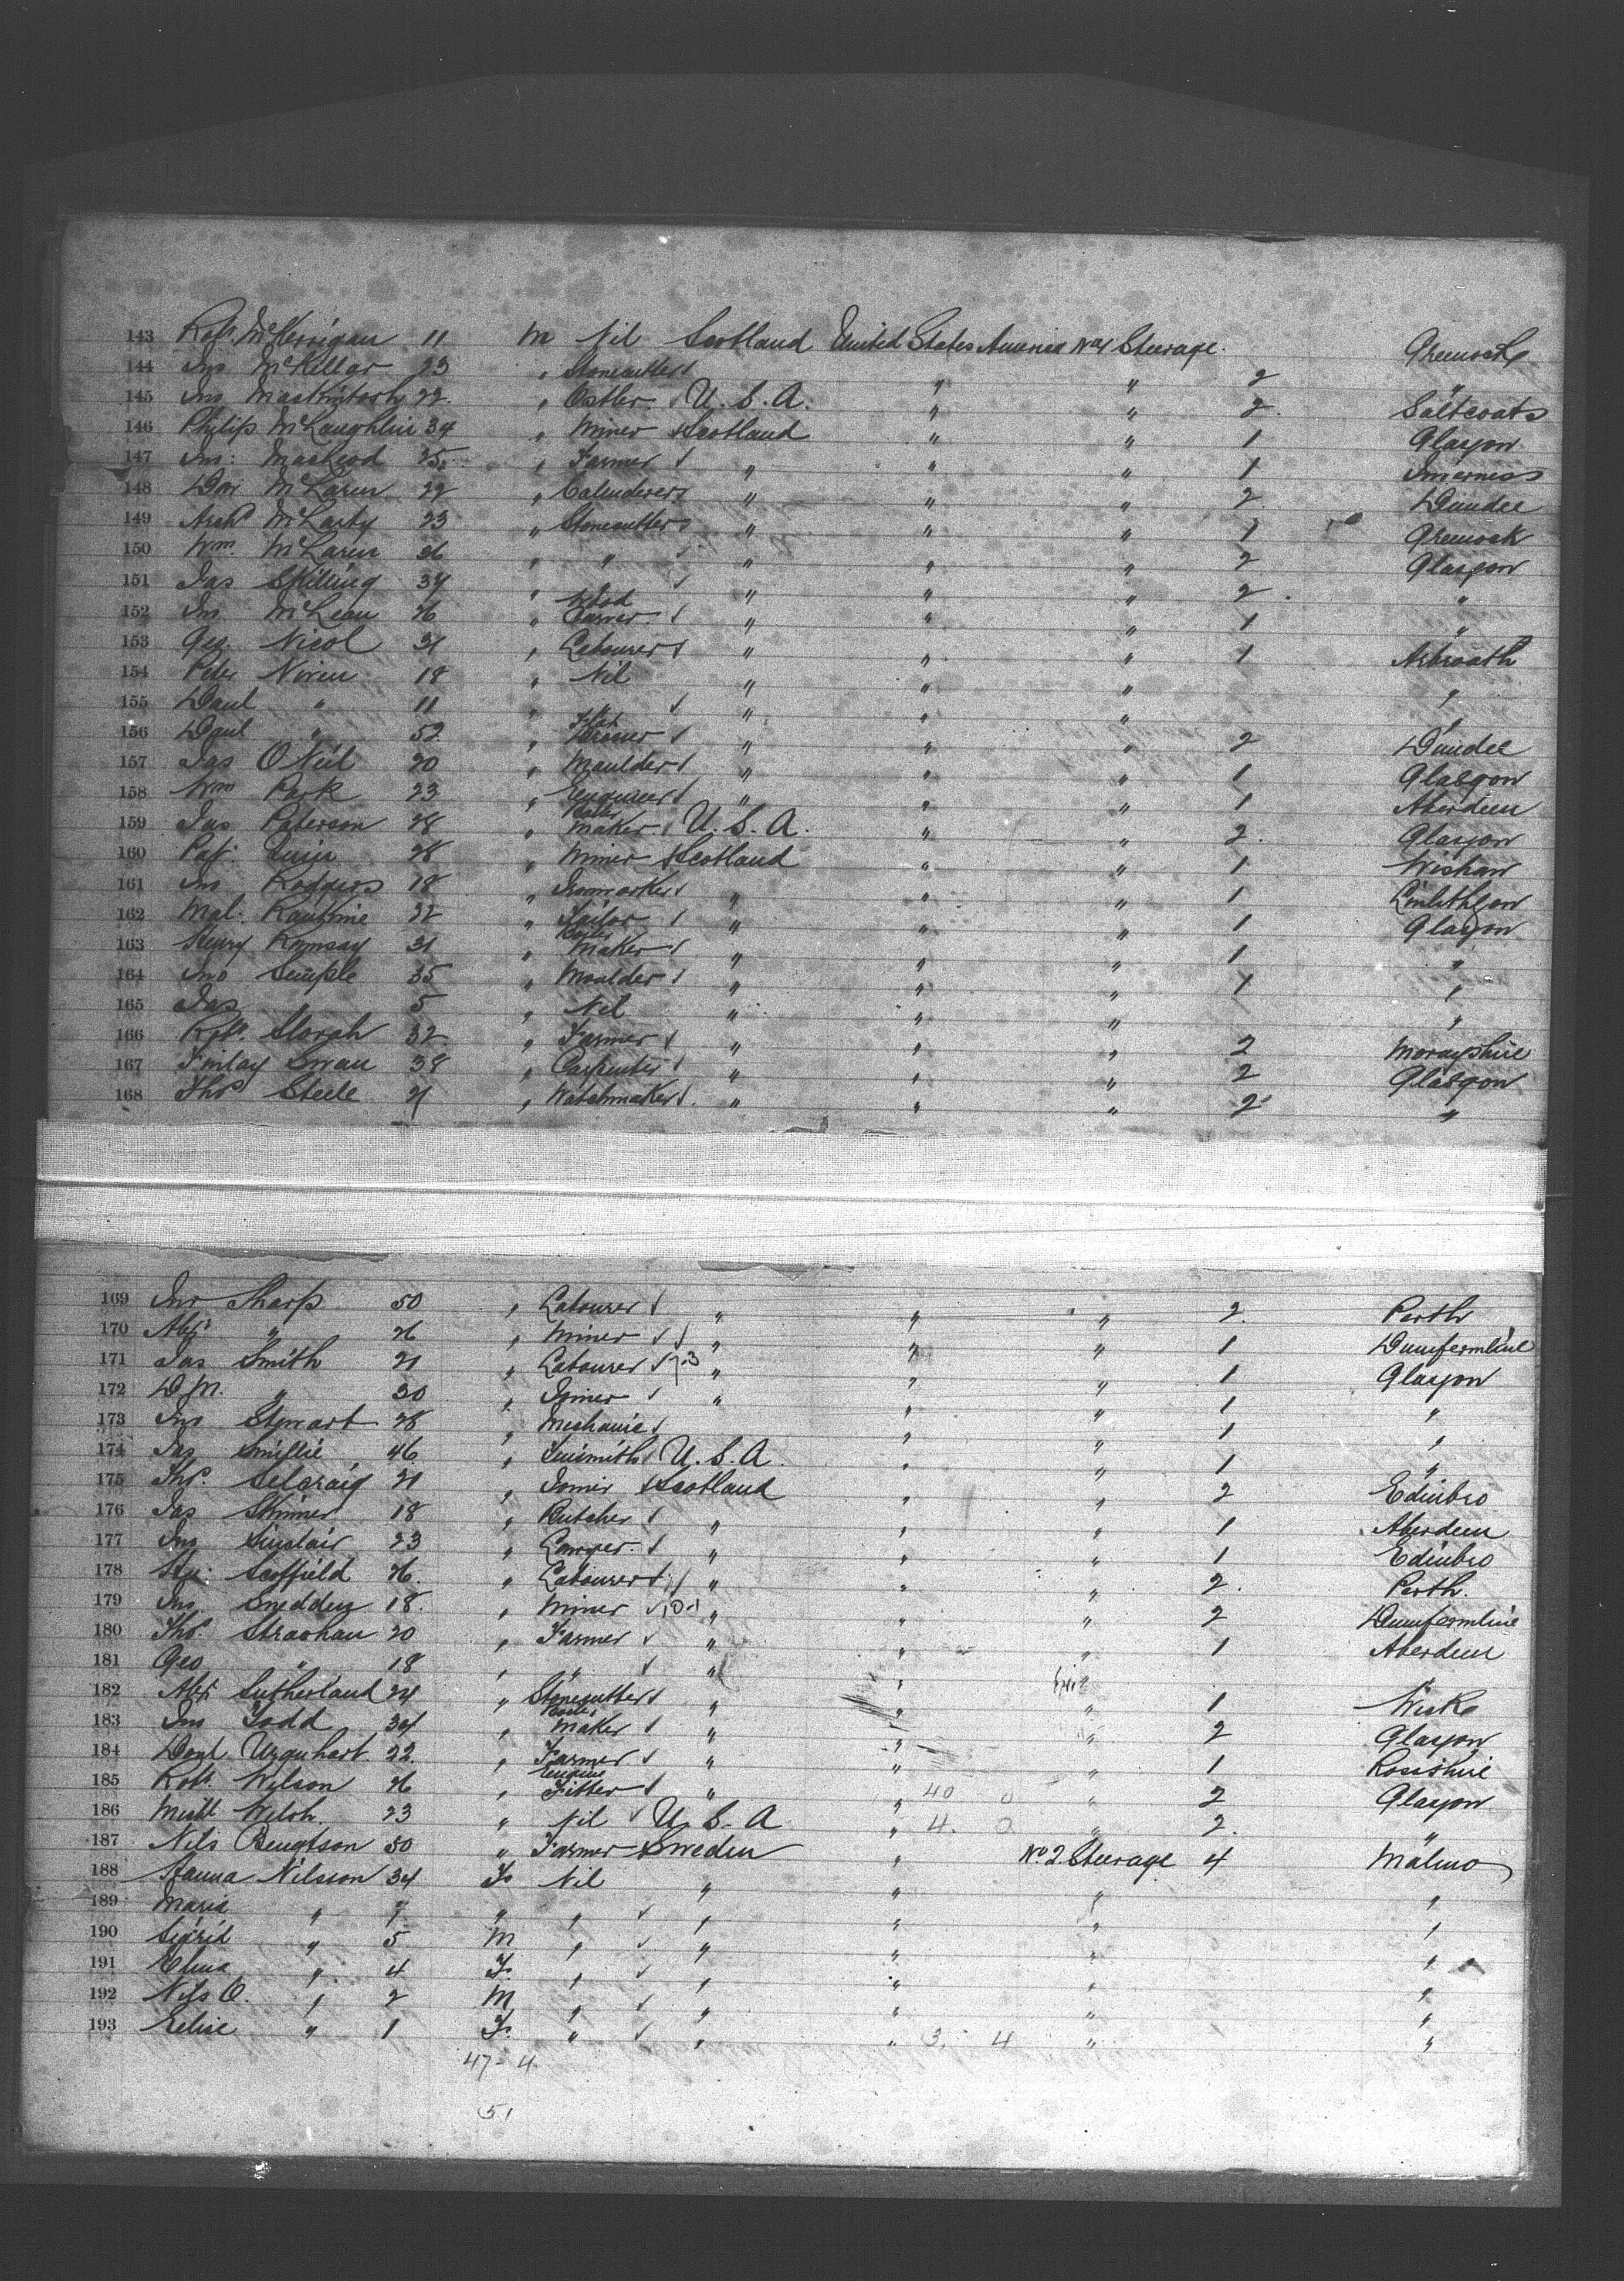 143 Robt. McKerrigan 11 M Nil Scotland United States America No 1 Steerage. Greenock
144 Jno McKellar 23 " Stonecutter " " 2 "
145 Jno MacKintosh 22. " Ostler. U. S. A. " " 2. Saltcoats
146 Philip McLaughlin 34 " Miner Scotland " " 1 Glasgow
147 Jno: MacLeod 25 " Farmer " " " 1 Inverness
148 Don McLaren 22 " Calenderer " " " 2. Dundee
149 Archd McLarty 23 " Stonecutter " " " 1 Greenock
150 Wm. McLaren 26 " " " " " 2 Glasgow
151 Jas Skilling 34 " " " " 2. "
152 Jno. McLean 26 " Wood Carver " " " 1 "
153 Geo. Nicol 31 " Labourer " " " 1 Arbroath
154 Peter Niven 18 " Nil " " " "
155 Danl " 11 " " " " " "
156 Danl " 52 " Flax Dresser " " " 2 Dundee
157 Jas O'Neil 20 " Moulder " " " 1 Glasgow
158 Wm Park 23 " Engineer " " " 1 Aberdeen
159 Jas Paterson 28 " Boiler Maker U. S. A. " " 2. Glasgow
160 Pat. Quin 28 " Miner Scotland " " 1 Wishaw
161 Jno Rodgers 18 " Ironworker " " " 1 Linlithgow
162 Mal. Rankine 22 " Tailor " " " 1 Glasgow
163 Henry Ramsay 31 " Boiler Maker " " " 1 "
164 Jno Semple 35 " Moulder " " " 1 "
165 Jas " 5 " Nil " " " "
166 Robt. Storah 32 " Farmer " " " 2 Morayshire
167 Finlay Swan 38 " Carpenter " " " 2 Glasgow
168 Thos Steele 21 " Watchmaker. " " " 2 "
169 Jno Sharp 50 " Labourer " " " 2. Perth
170 Alex " 26 " Miner " " " 1 Dunfermline
171 Jas Smith 21 " Labourer 7-3 " " " 1 Glasgow
172 D. M. " 30 " Joiner " " " 1 "
173 Jno Stewart 28 " Mechanic " " 1 "
174 Jas Smillie 46 " Tinsmith U. S. A. " " 1 "
175 Thos. Selcraig 21 " Joiner Scotland " " 2 Edinbro
176 Jas Skinner 18 " Butcher " " " 1 Aberdeen
177 Jno Sinclair 23 " " " " 1 Edinbro
178 Scoffield 26. " Labourer " " " 2. Perth.
179 Jno. Sneddon 18. " Miner " " " 2 Dunfermline
180 Thos. Strachan 20 " Farmer " " " 1 Aberdeen
181 Geo " 18 " " " "
182 Alex Sutherland 24 " Stonecutter " " " 1 Wick
183 Jno Todd 34 " Boiler Maker " " " 2 Glasgow
184 Donl Urquhart 22. " Farmer " " " 1 Rossshire
185 Robt. Wilson 26 " Engine Fitter " " 40 0 " 2 Glasgow
186 Michl Welsh. 23 " Nil U. S. A " 4. 0 " 2. "
187 Nils Bengtson 50 " Farmer Sweden " No 2 Steerage 4 Malmo
188 Hanna Nilsson 34 F. Nil " " " "
189 Maria " 7 " " " " " "
190 Sigrid " 5 M " " " " "
191 Elma " 4 F. " " " " "
192 Nils O. " 2 M " " " " "
193 Elise " 1 F. " " " 3. 4 " "
47 - 4
51